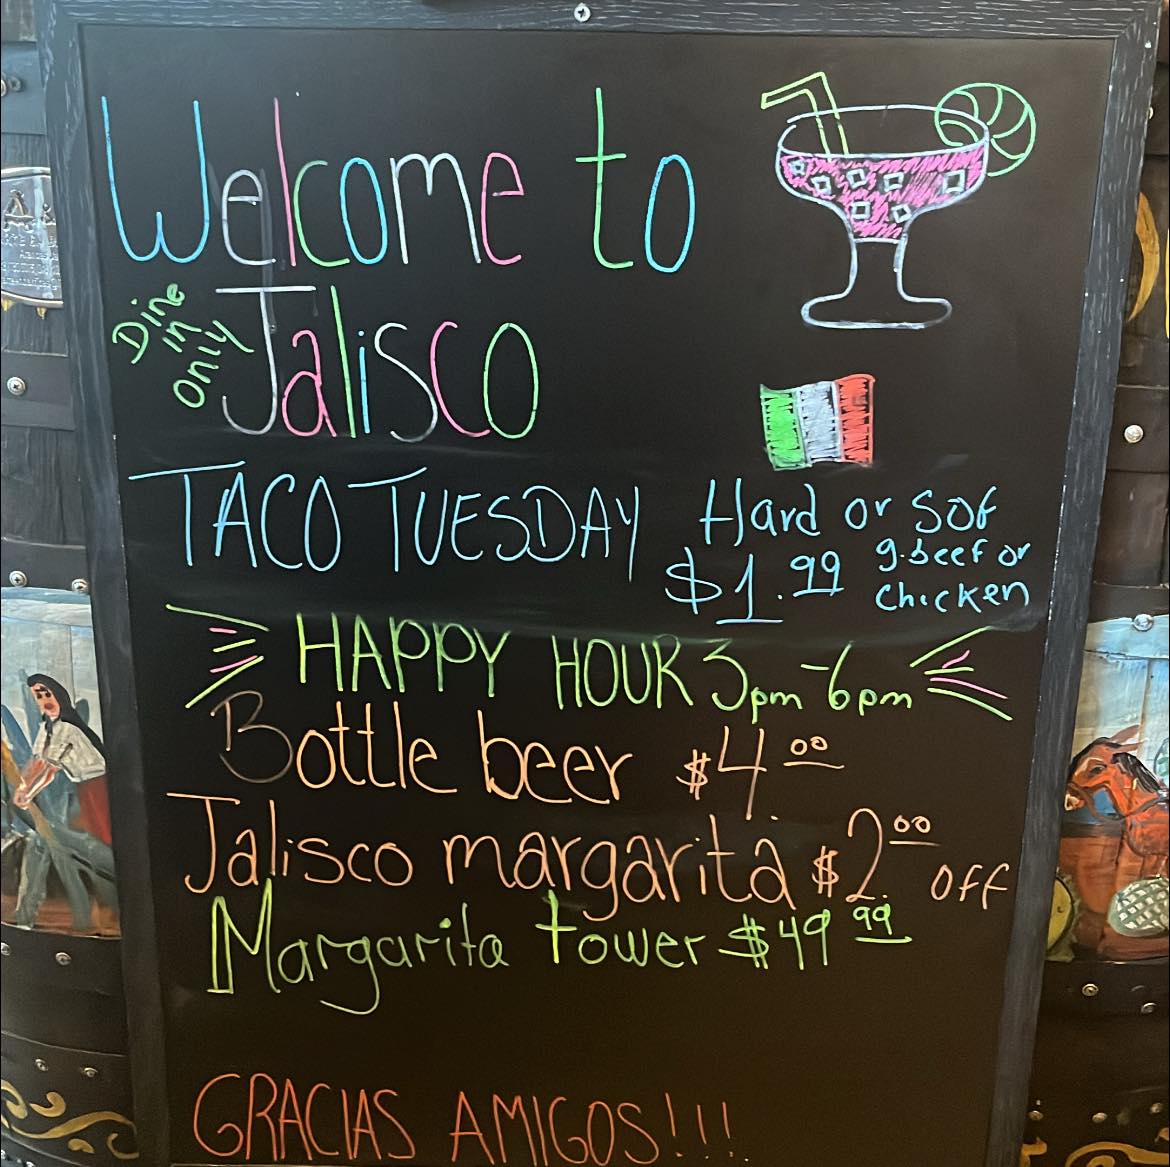 Welcome to
Dine
in
only
Jalisco
TACO TUESDAY
Hard or Sof
$1.99
g.beef or
chicken
HAPPY HOUR 3pm-6pm
Bottle beer $4 00
Jalisco margarita $2.00 OFF
Margarita tower $49 99
GRACIAS AMIGOS!!!!